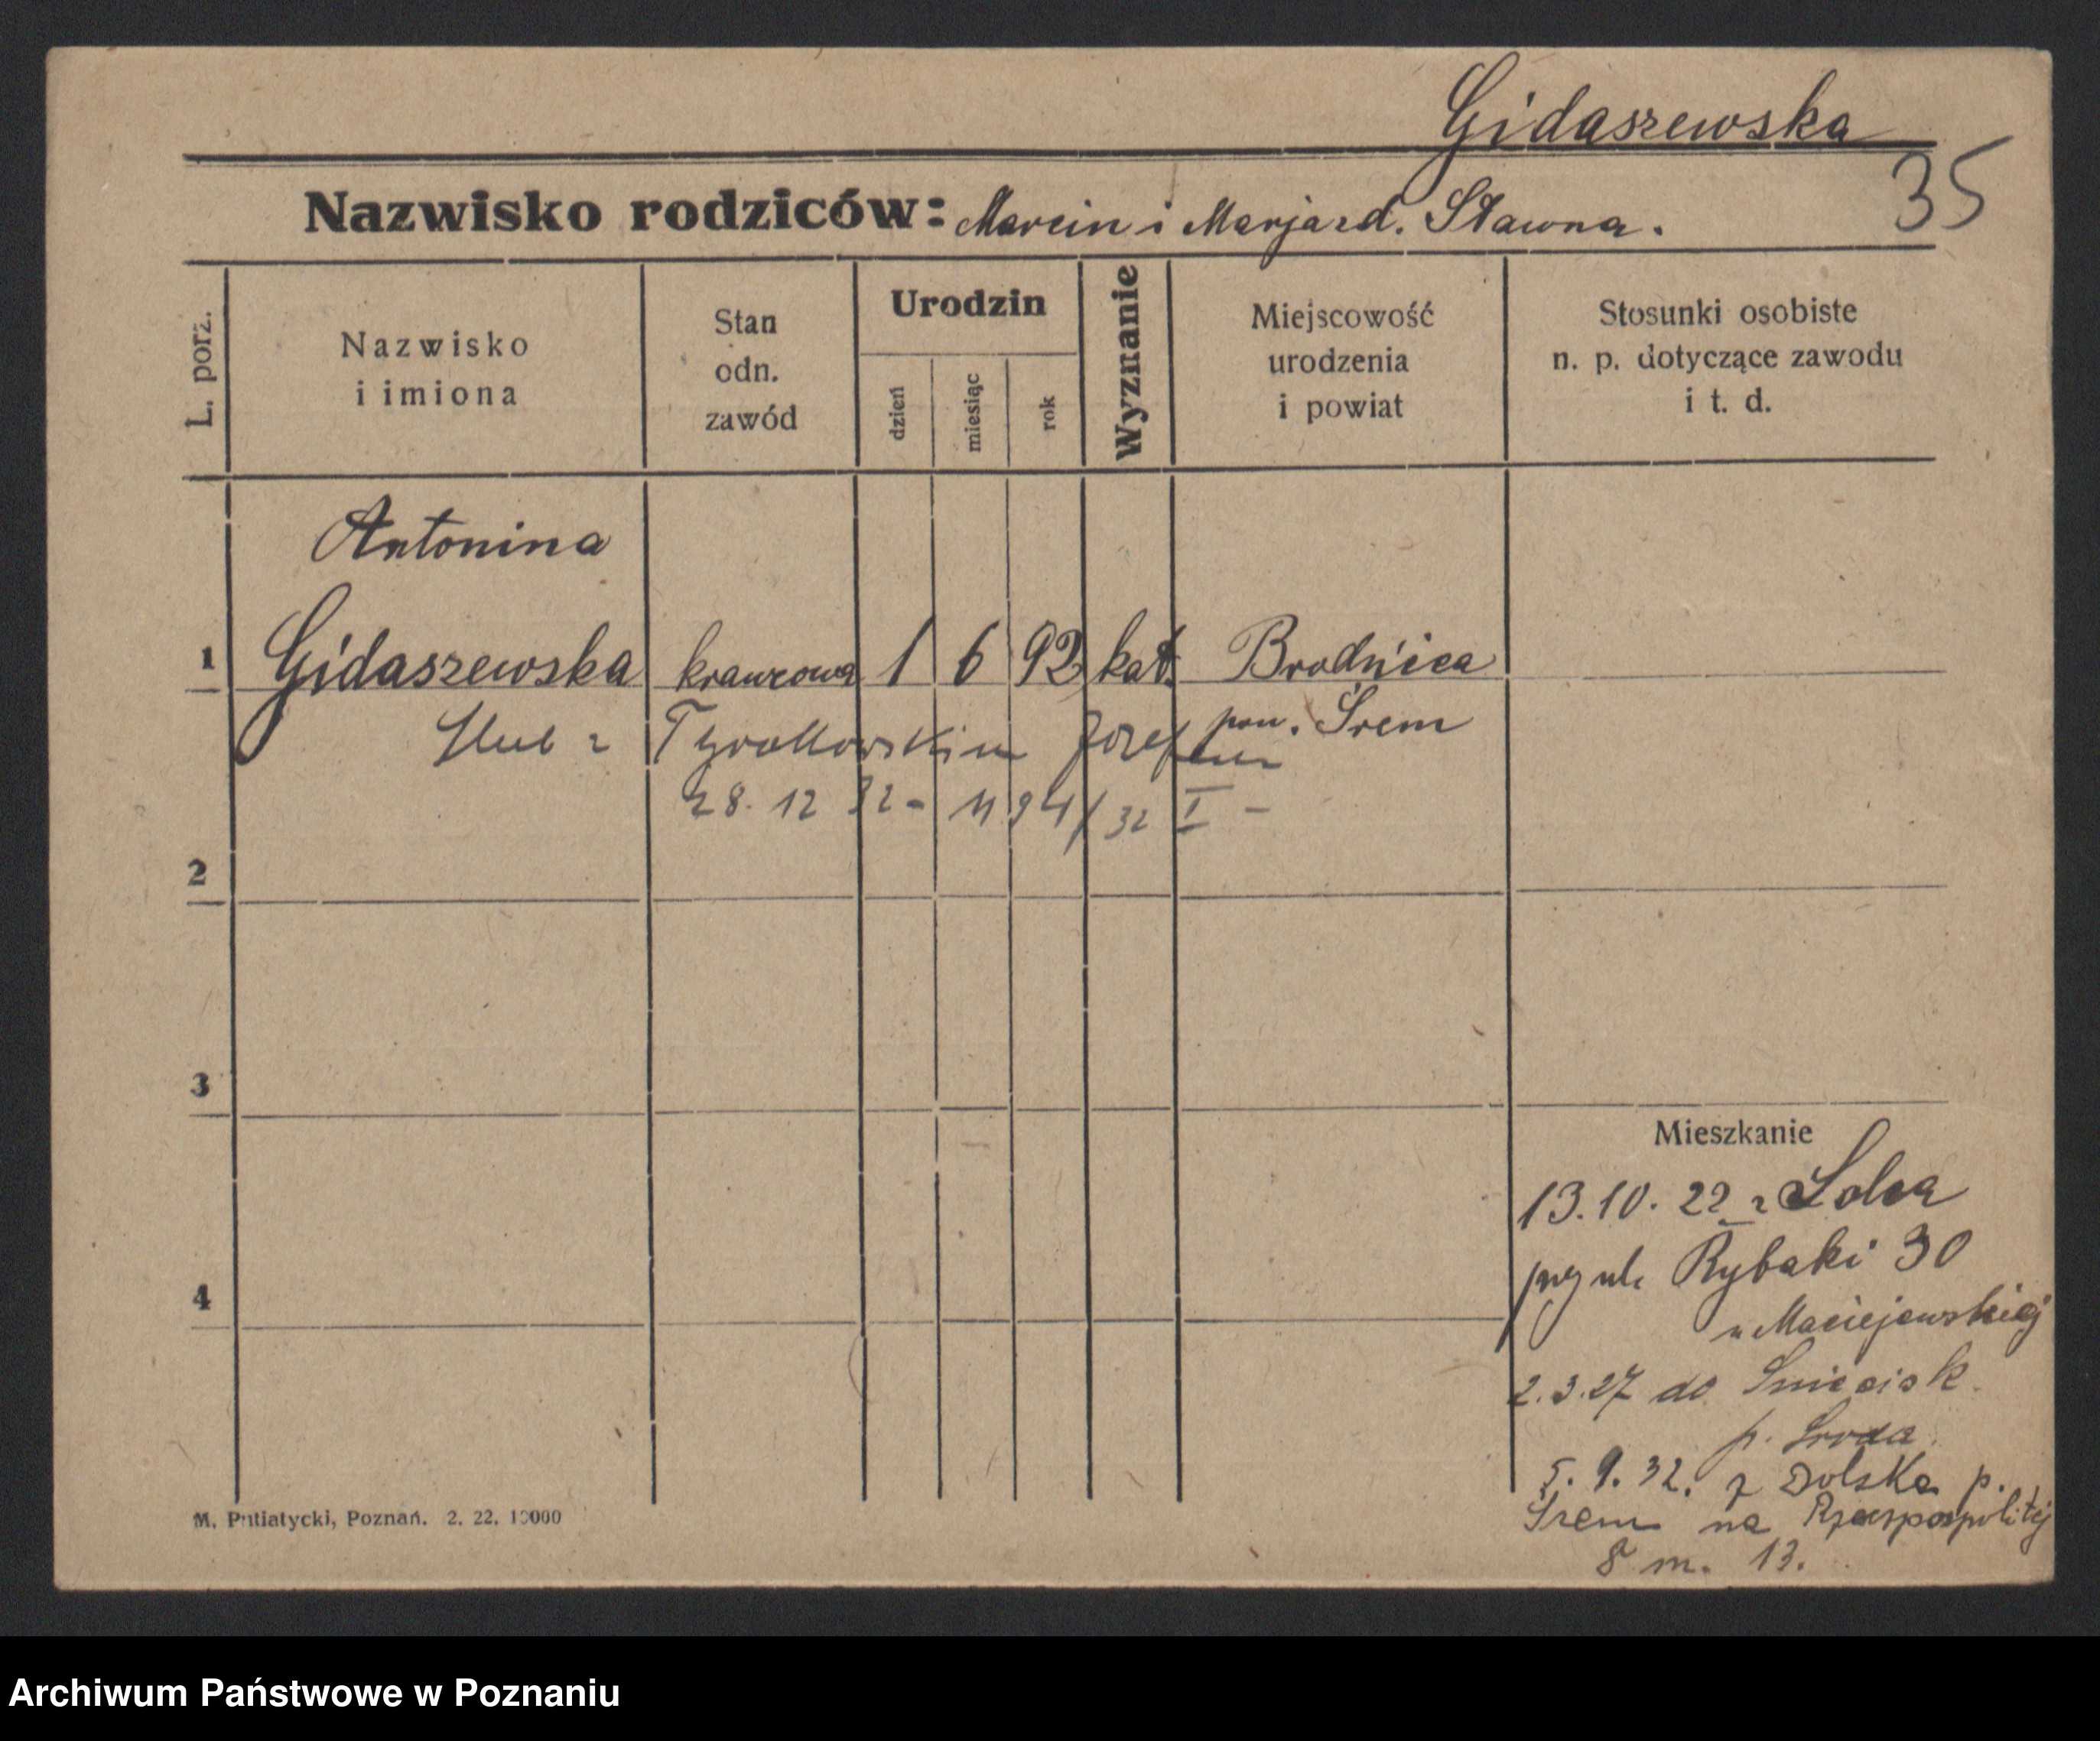 Gidaszewska
35
Nazwisko rodziców: Marcin i Marja zd. Sławna.
L. porz.
Nazwisko
i imiona
Stan
odn.
zawód
Urodzin
dzień
miesiąc
rok
Wyznanie
Miejscowość
urodzenia
i powiat
Stosunki osobiste
n. p. dotyczące zawodu
i t. d.
Antonina
1 Gidaszewska krawcowa 1 6 92 kat. Brodnica
pow. Śrem
Ślub z Józefem
28. 12 32 - 1194/32 I -
2
3
4
Mieszkanie
13.10.22 z
przy ul. Rybaki 30
u Maciejewskiej
2.3.27 do Śniecisk
p. Środa
5. 9. 32. z Dolska p.
Śrem na Rzeczpospolitej
8 m. 13.
M. Putiatycki, Poznań. 2. 22. 10000
Archiwum Państwowe w Poznaniu